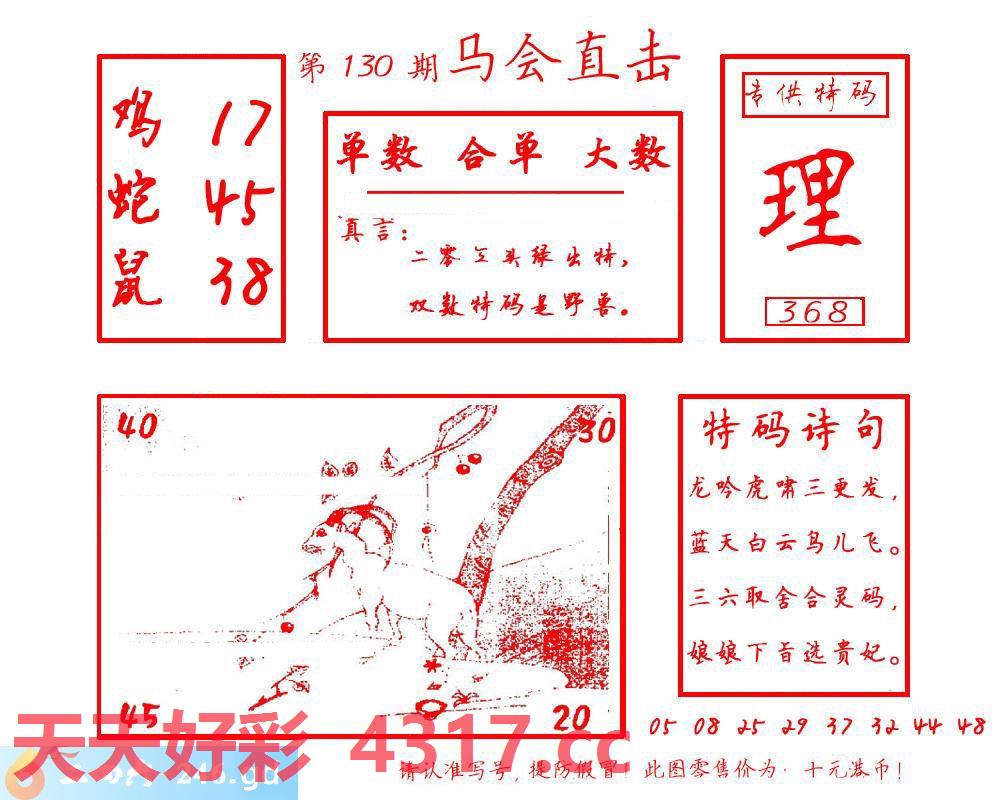 第 130 期 马会直击
鸡 17
蛇 45
鼠 38
单数 合单 大数
真言:
二零三头绿出特,
双数特码是野兽。
专供特码
理
368
40
30
45
20
特码诗句
龙吟虎啸三更发,
蓝天白云鸟儿飞。
三六取舍合灵码,
娘娘下旨选贵妃。
05 08 25 29 37 32 44 48
天天好彩 4317.cc
246.gd
请认准写号, 提防假冒! 此图零售价为· 十元港币!